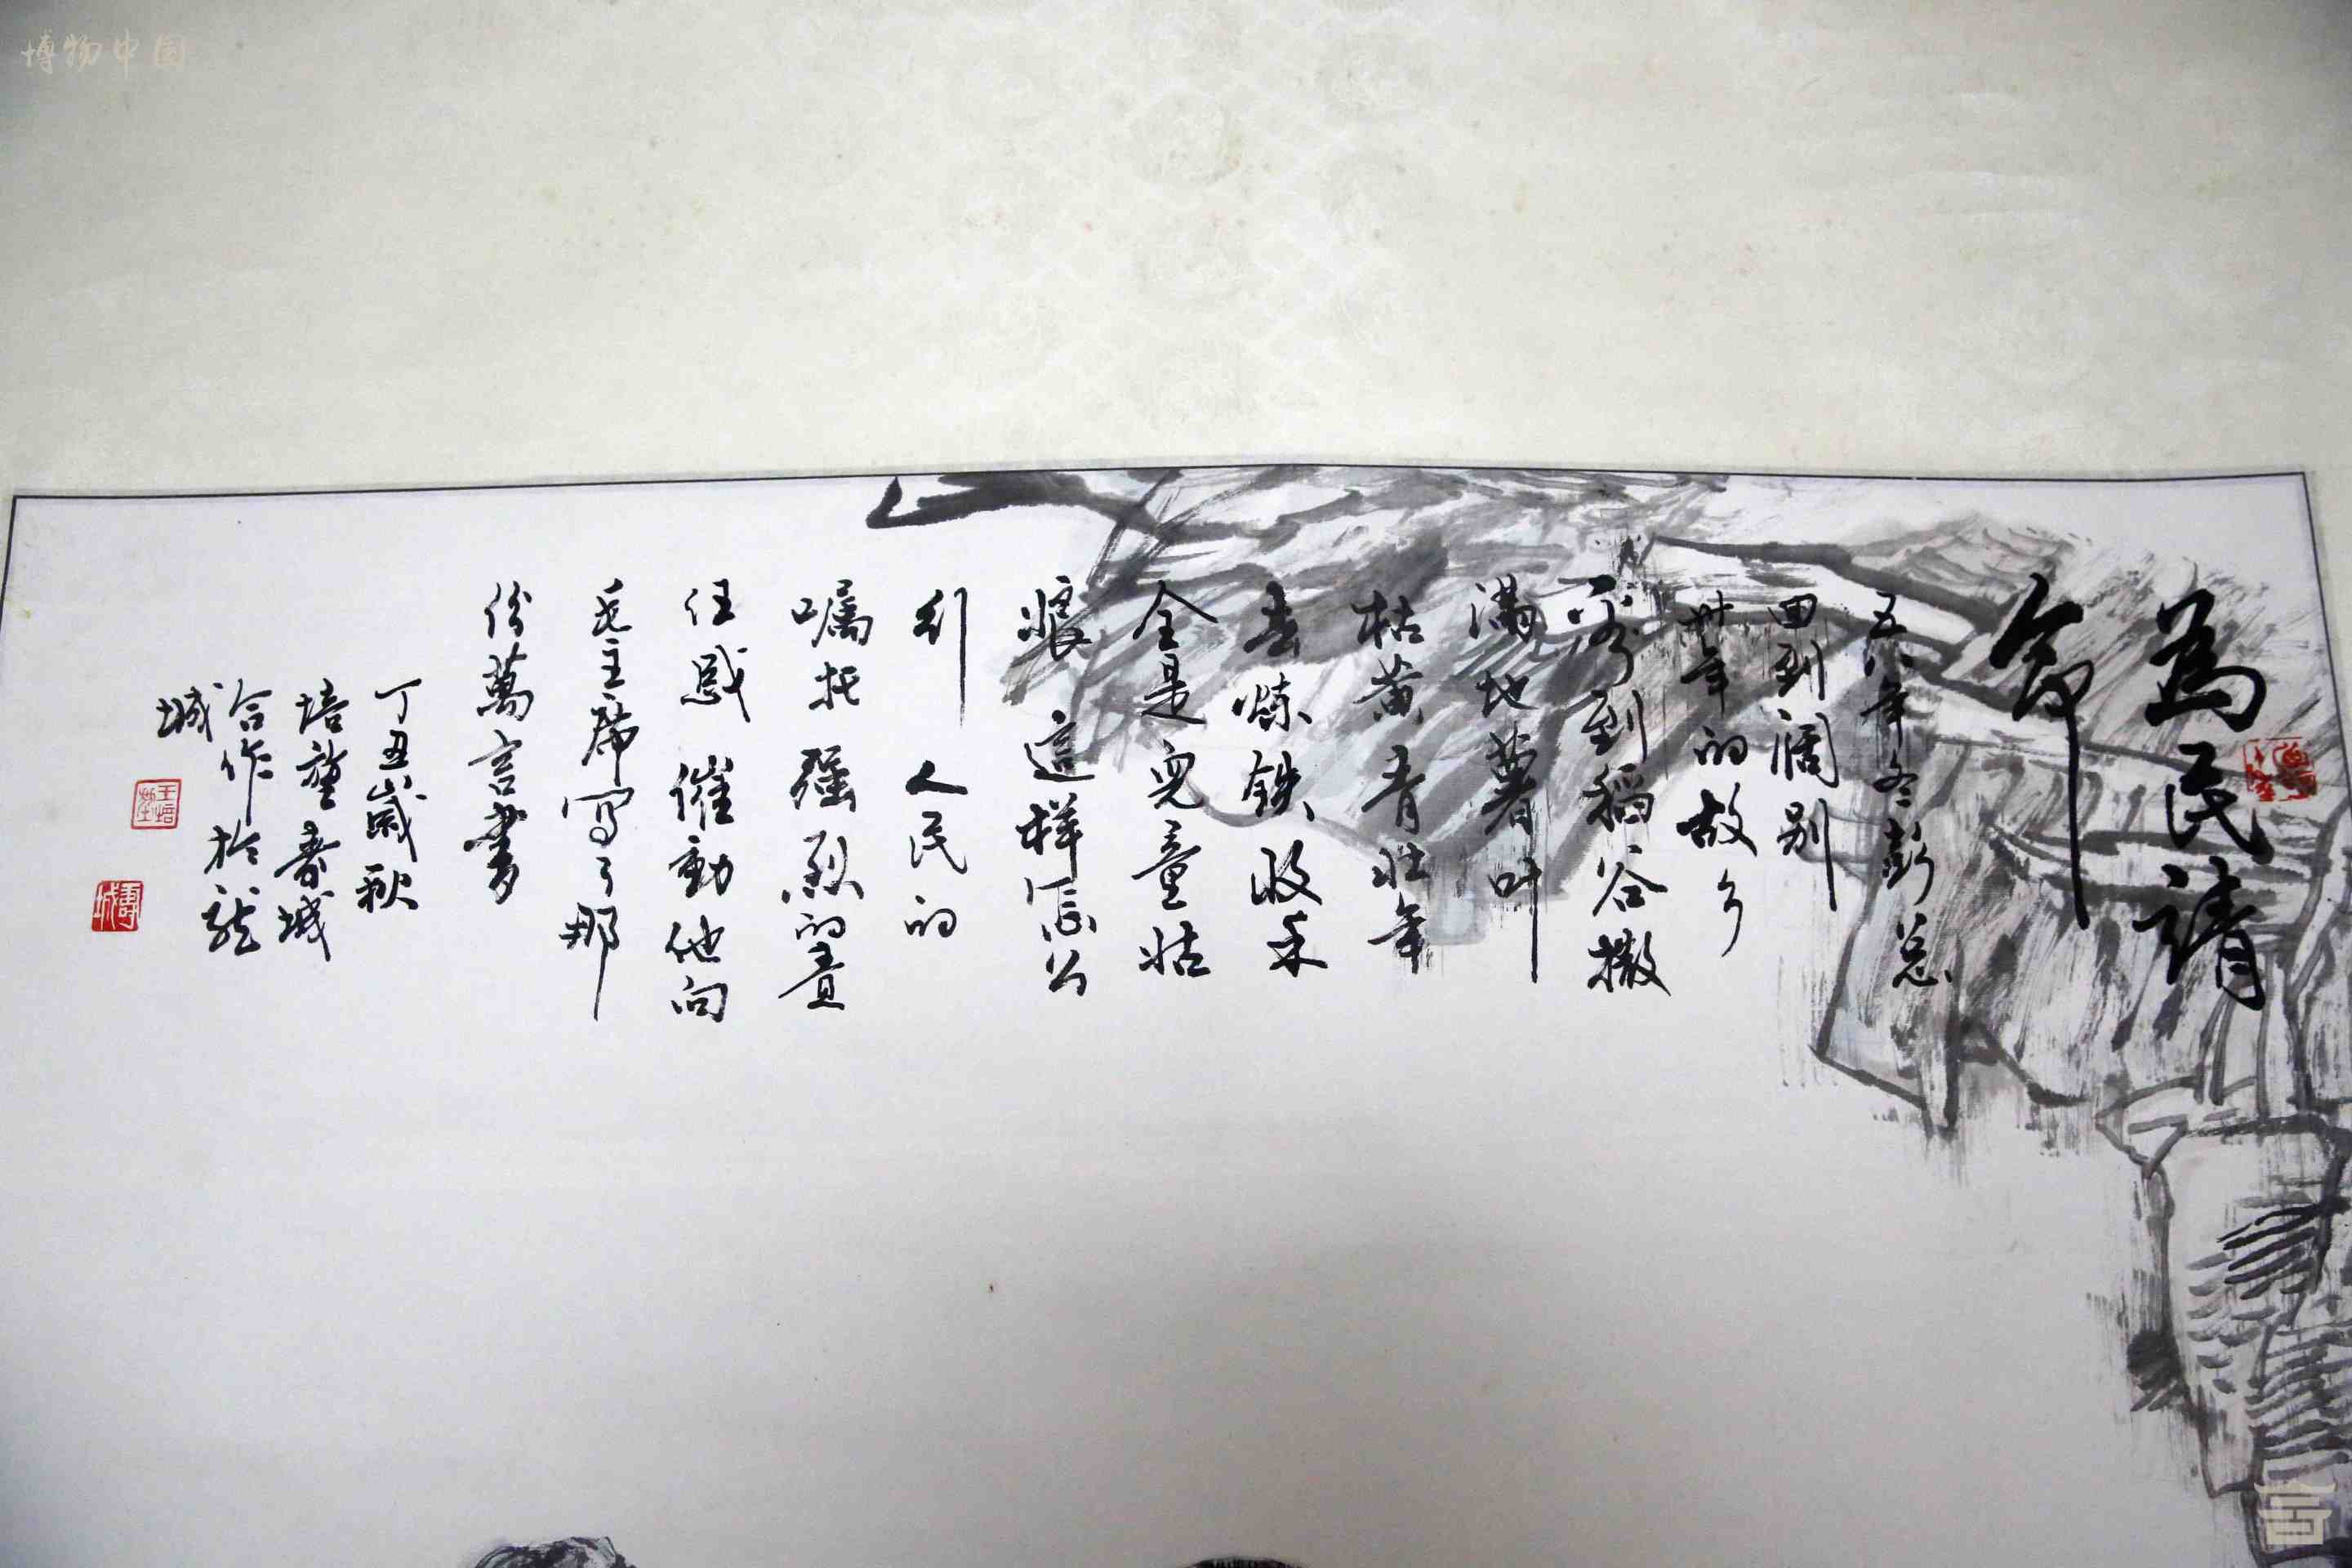 為民請
命
五八年冬彭总
回到阔别
卅年的故乡
看到稻谷撒
满地薯叶
枯黄青壮年
去炼铁收禾
全是兒童姑
娘這样的公
引人民的
嘱托强烈的責
任感催動他向
毛主席寫了那
份萬言書
丁丑歲秋
培堃春城
合作於龍
城
王培堃
博物中国